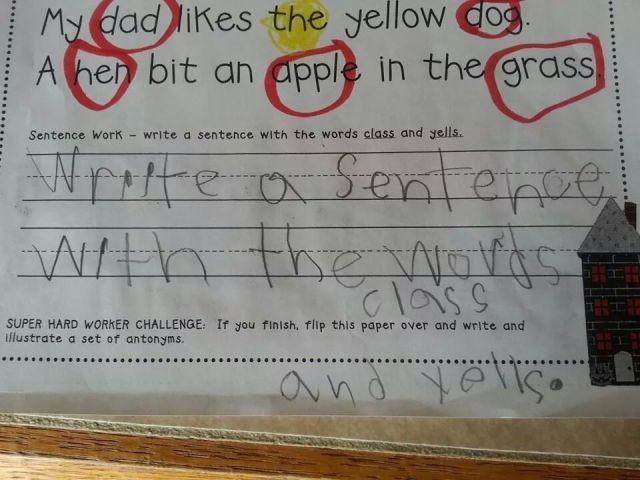 My dad likes the yellow dog.
A hen bit an apple in the grass.
Sentence Work – write a sentence with the words class and yells.
Write a Sentence
With the Words
class
SUPER HARD WORKER CHALLENGE: If you finish, flip this paper over and write and
illustrate a set of antonyms.
and yells.